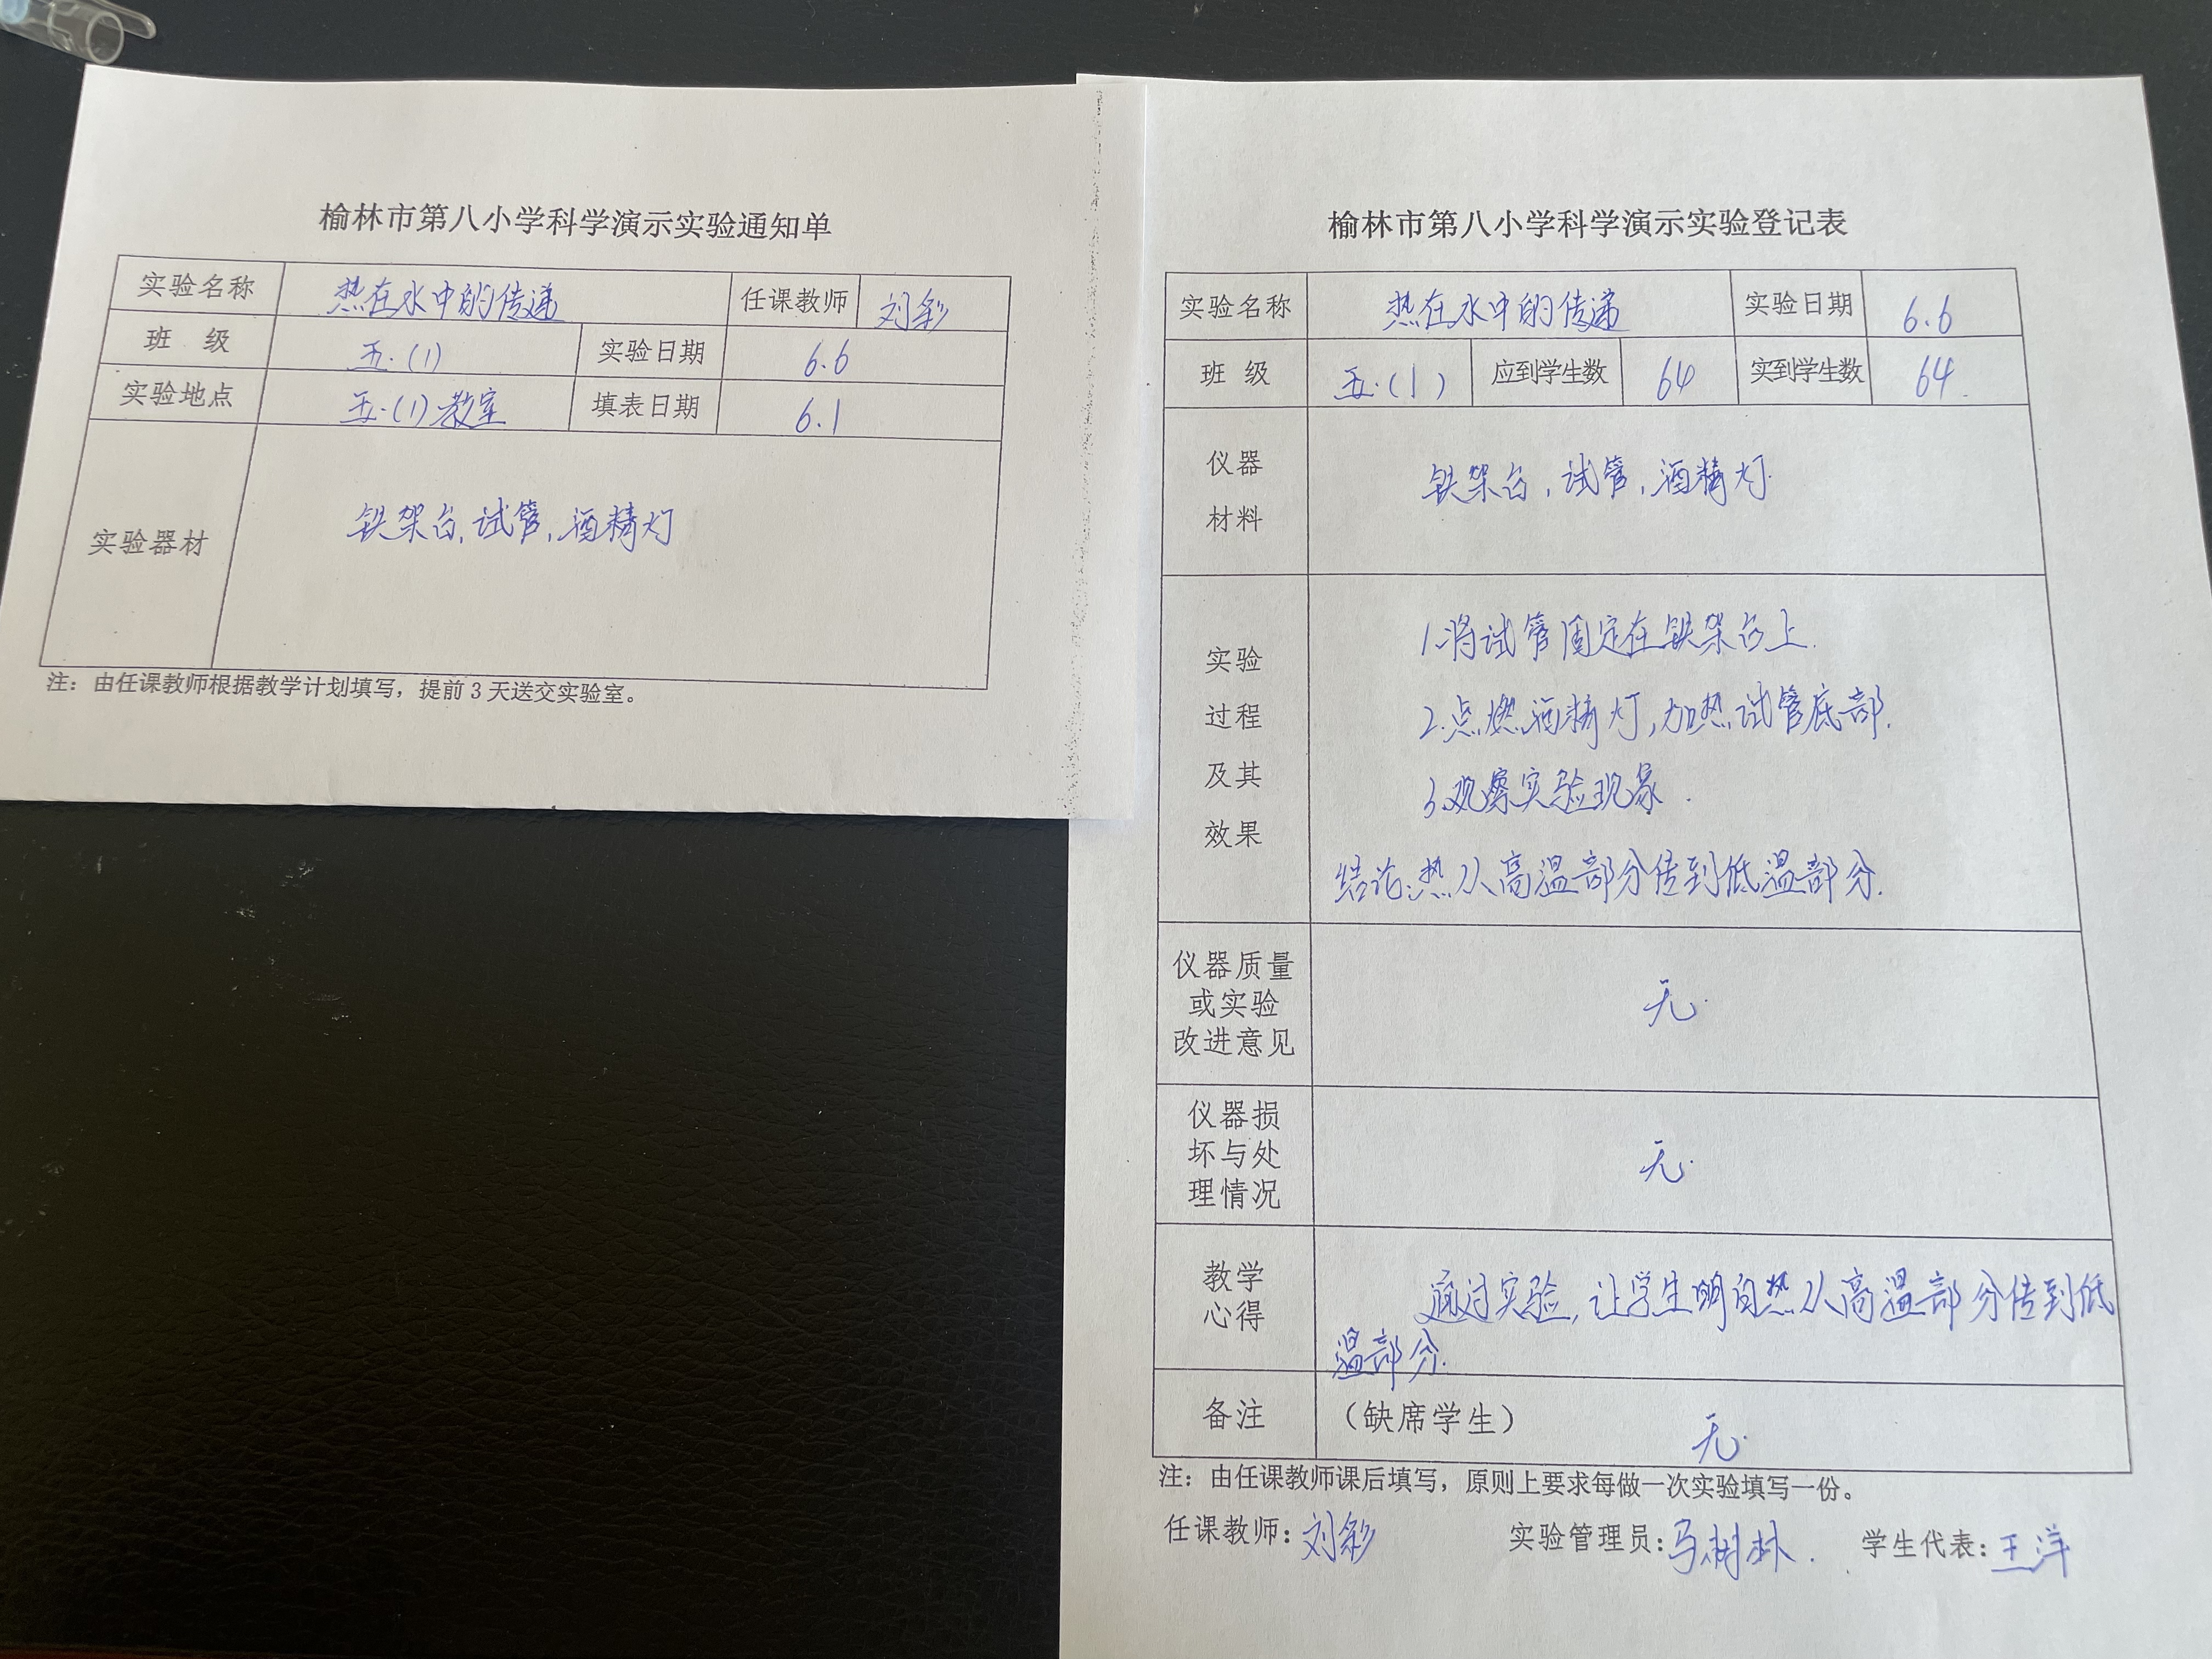 榆林市第八小学科学演示实验通知单
实验名称 热在水中的传递 任课教师 刘彩
班 级 五.(1) 实验日期 6.6
实验地点 五.(1)教室 填表日期 6.1
实验器材 铁架台,试管,酒精灯
注：由任课教师根据教学计划填写，提前 3 天送交实验室。
榆林市第八小学科学演示实验登记表
实验名称 热在水中的传递 实验日期 6.6
班 级 五.(1) 应到学生数 64 实到学生数 64.
仪器
材料
铁架台,试管,酒精灯.
实验
过程
及其
效果
1.将试管固定在铁架台上.
2.点燃酒精灯,加热试管底部.
3.观察实验现象.
结论:热从高温部分传到低温部分.
仪器质量
或实验
改进意见
无.
仪器损
坏与处
理情况
无.
教学
心得
通过实验,让学生明白热从高温部分传到低
温部分.
备注 （缺席学生） 无.
注：由任课教师课后填写，原则上要求每做一次实验填写一份。
任课教师: 刘彩 实验管理员: 马树林. 学生代表: 王洋